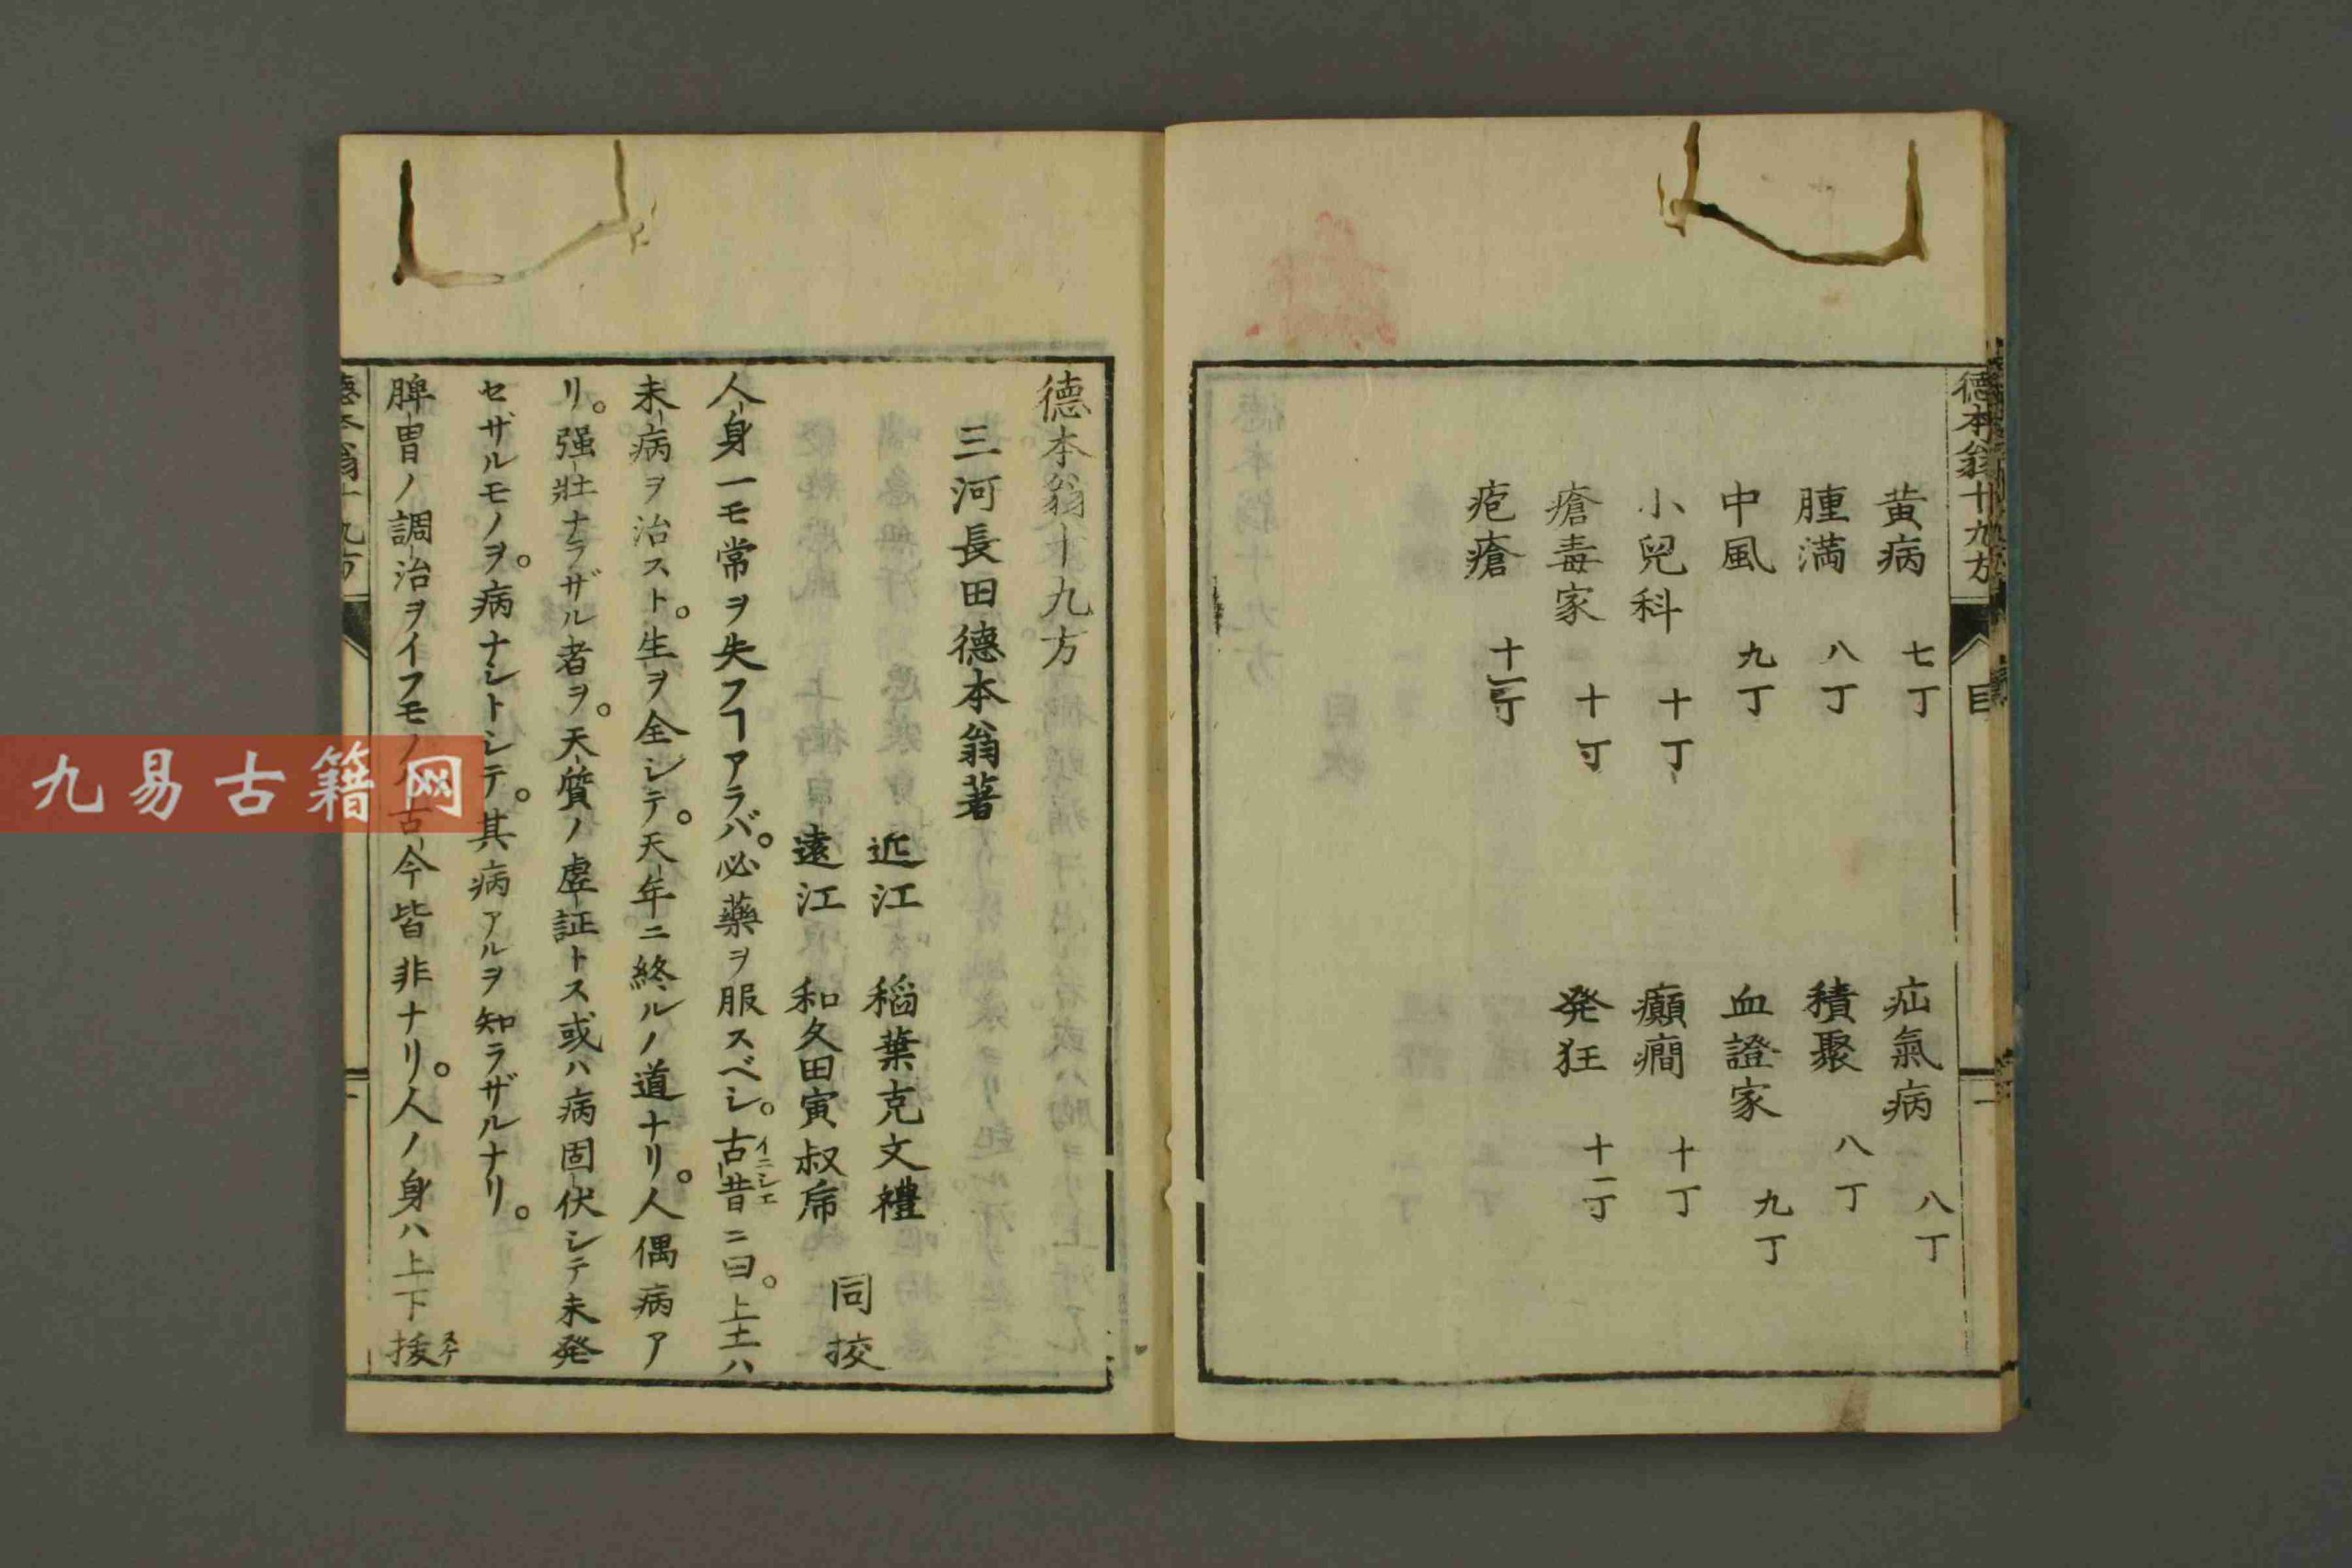 德本翁十九方
目
黄病 七丁
疝氣病 八丁
腫満 八丁
積聚 八丁
中風 九丁
血證家 九丁
小兒科 十丁
癲癇 十丁
瘡毒家 十丁
発狂 十一丁
疱瘡 十一丁
德本翁十九方
三河長田德本翁著
近江 稲葉克文禮
遠江 和久田寅叔席
同挍
人身一モ常ヲ失フヿアラバ。必藥ヲ服スベシ。古昔ニ曰。上士ハ
イニシエ
未病ヲ治スト。生ヲ全シテ。天年ニ終ルノ道ナリ。人偶病ア
リ。强壯ナラザル者ヲ。天質ノ虚証トス或ハ病固伏シテ未発
セザルモノヲ。病ナシトシテ。其病アルヲ知ラザルナリ。
脾胃ノ調治ヲイフモノハ古今皆非ナリ。人ノ身ハ上下
德本翁十九方
九易古籍网